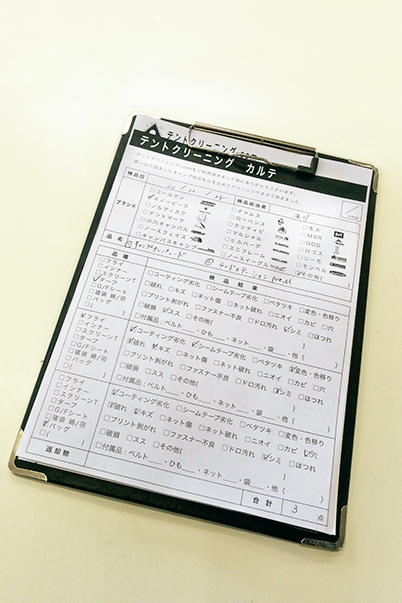 テントクリーニング.com
テントクリーニング カルテ
検品日
検品担当者
ブランド
□コールマン □チャムス □モス
スノーピーク □ローベンス □MSR
□オガワ □テンティピ □DOD
□テントマーク □ノルディスク □ロゴス
□小川キャンパル □ヒルバーグ
□ノースフェイス □ニーモ
□キャンバスキャンプ □ノースイーグル □その他(
品 名
品 種 検 品 結 果
□フライ □コーティング劣化 □シームテープ劣化 □ベタツキ □変色・色移り
□インナー □破れ □キズ □ネット傷 □ネット破れ □ニオイ □カビ □穴
□スクリーンT □プリント剥がれ □ファスナー不良 □ドロ汚れ □シミ □ほつれ
タープ □破損 □スス □その他( )
□G/Fシート □付属品:ベルト___、ひも___、ネット___、袋___、他( )
□寝袋 綿/羽
□バッグ
□( )
フライ コーティング劣化 シームテープ劣化 □ベタツキ 変色・色移り
□インナー 破れ キズ □ネット傷 □ネット破れ □ニオイ □カビ 穴
□スクリーンT □プリント剥がれ □ファスナー不良 □ドロ汚れ シミ □ほつれ
□タープ □破損 □スス □その他( )
□G/Fシート □付属品:ベルト___、ひも___、ネット___、袋___、他( )
□寝袋 綿/羽
□バッグ
□( )
□フライ コーティング劣化 □シームテープ劣化 □ベタツキ □変色・色移り
□インナー 破れ キズ □ネット傷 □ネット破れ □ニオイ □カビ □穴
□スクリーンT □プリント剥がれ □ファスナー不良 □ドロ汚れ シミ □ほつれ
□タープ □破損 □スス □その他( )
□G/Fシート □付属品:ベルト___、ひも___、ネット___、袋___、他( )
□寝袋 綿/羽
バッグ
□( )
返却物
合計 3 点